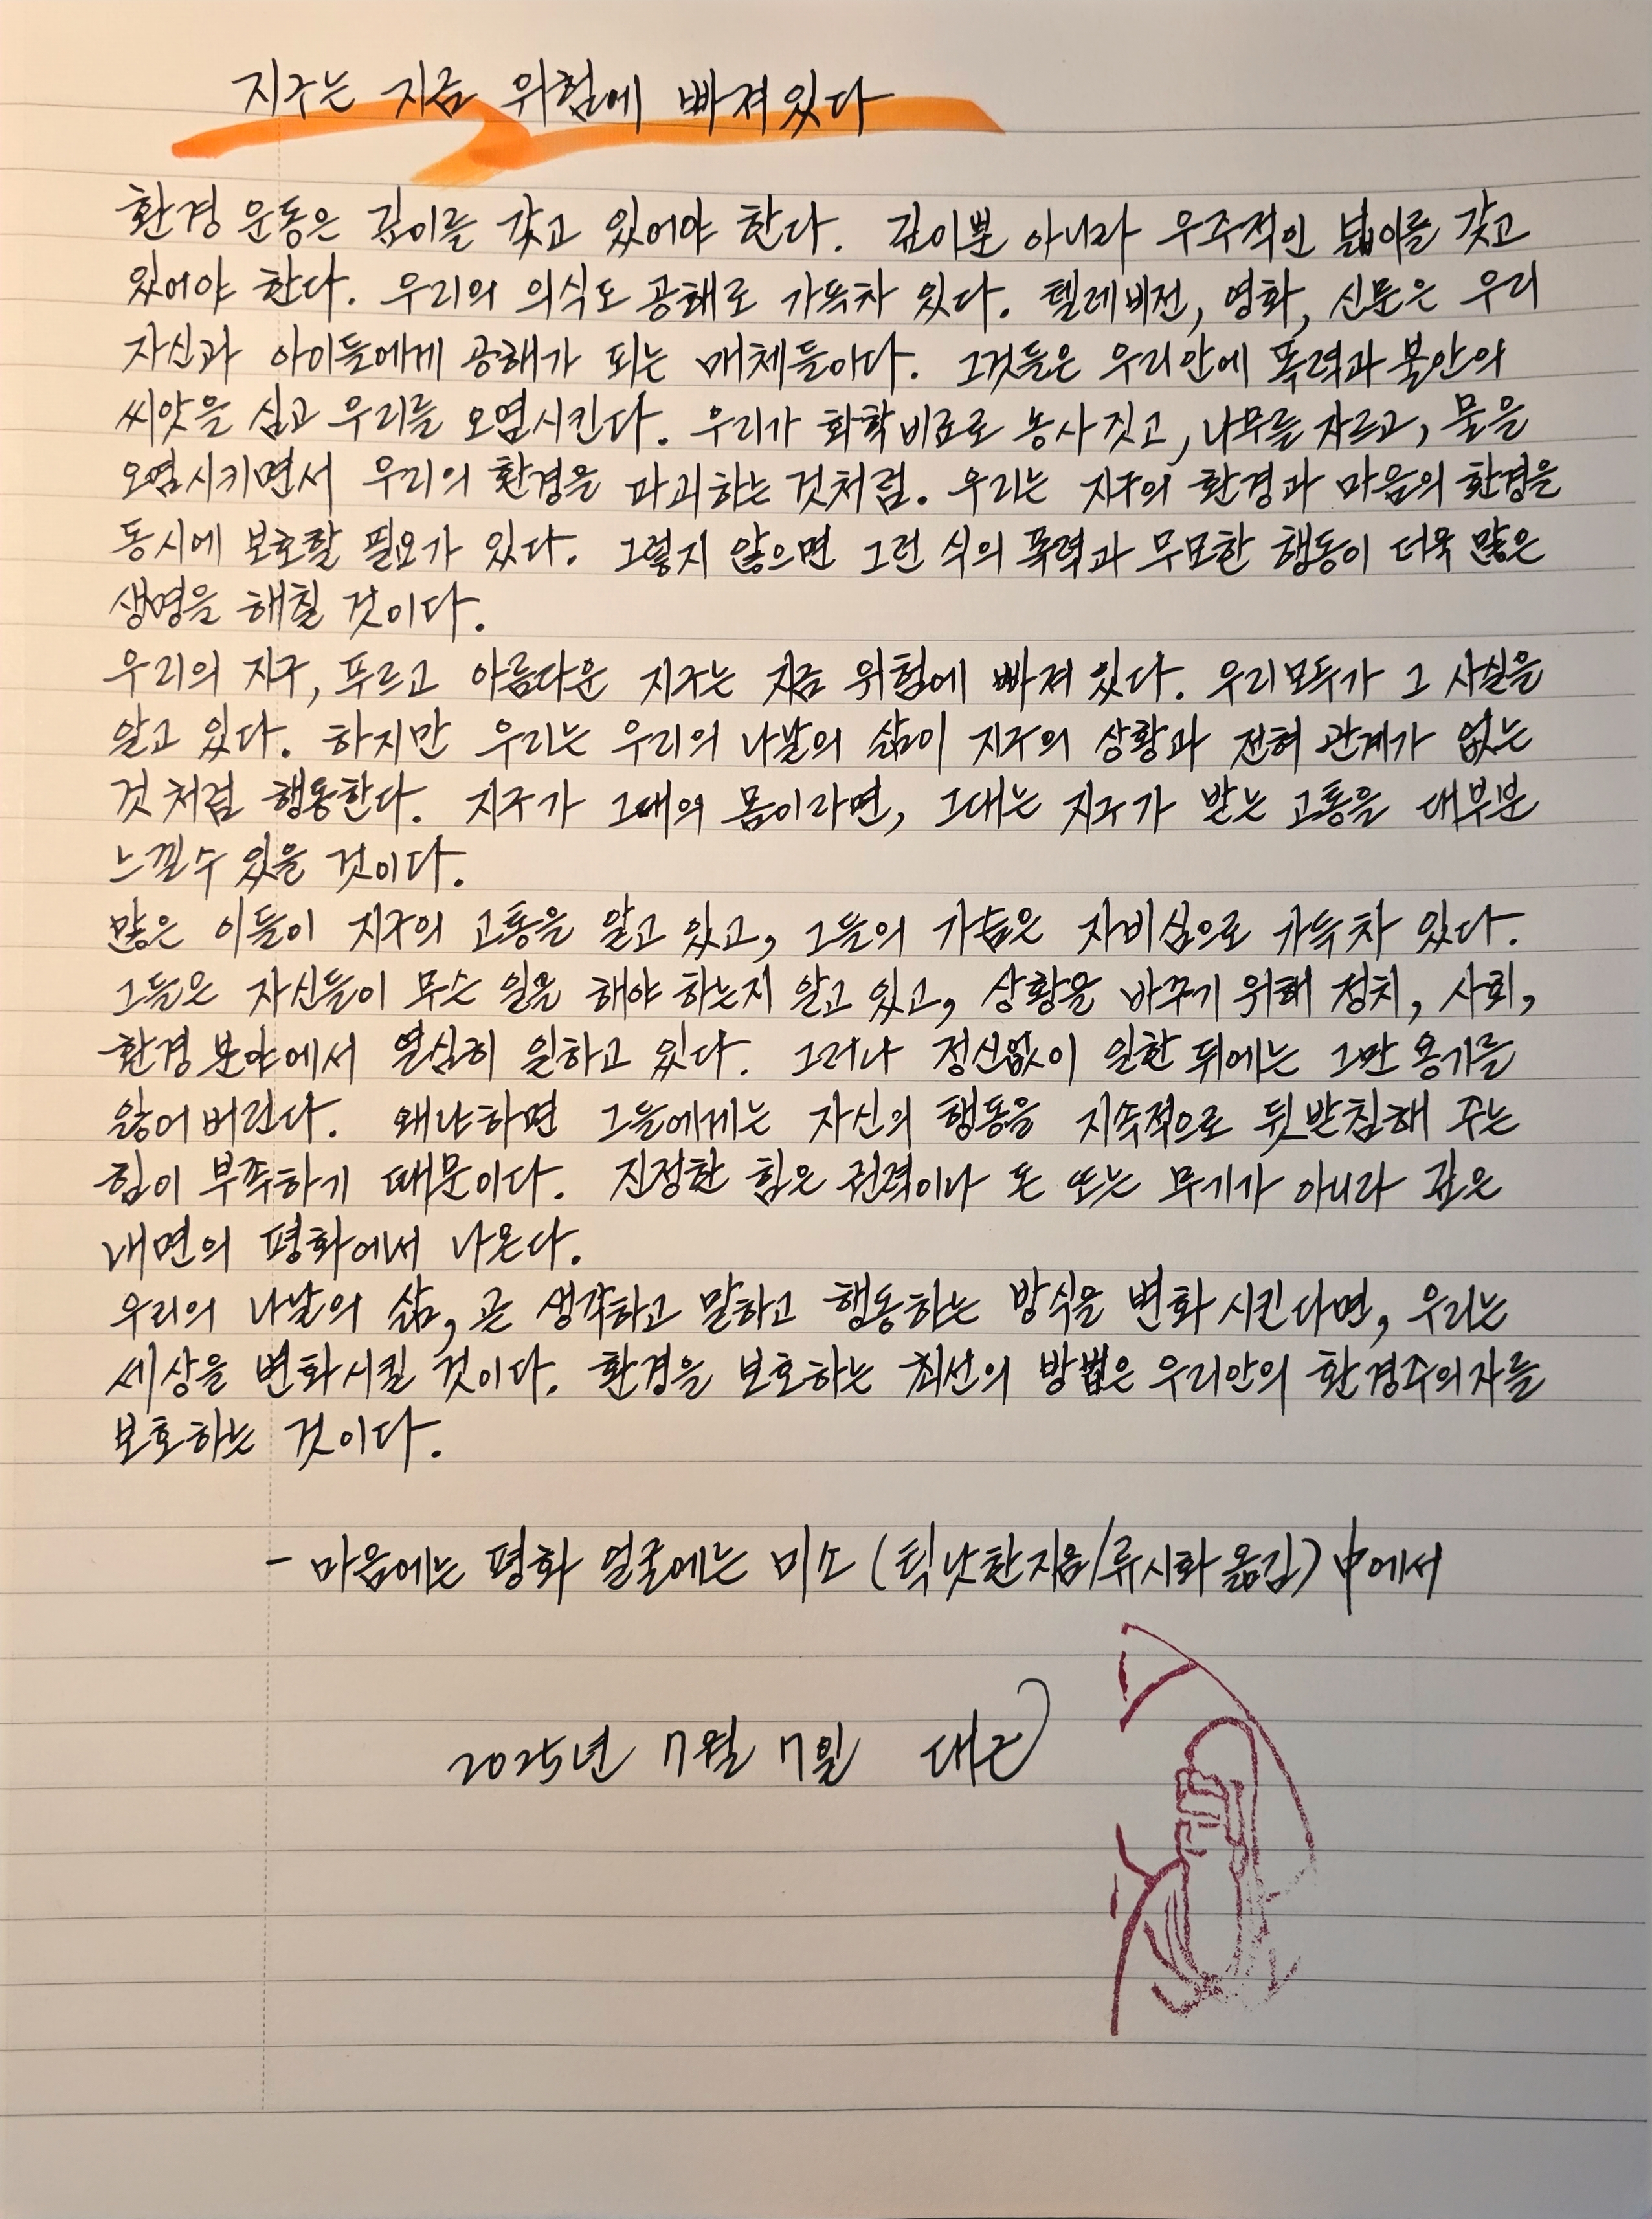 지구는 지금 위험에 빠져있다
환경 운동은 깊이를 갖고 있어야 한다. 깊이뿐 아니라 우주적인 넓이를 갖고
있어야 한다. 우리의 의식도 공해로 가득차 있다. 텔레비전, 영화, 신문은 우리
자신과 아이들에게 공해가 되는 매체들이다. 그것들은 우리안에 폭력과 불안의
씨앗을 심고 우리를 오염시킨다. 우리가 화학비료로 농사 짓고, 나무를 자르고, 물을
오염시키면서 우리의 환경을 파괴하는 것처럼. 우리는 지구의 환경과 마음의 환경을
동시에 보호할 필요가 있다. 그렇지 않으면 그런 식의 폭력과 무모한 행동이 더욱 많은
생명을 해칠 것이다.
우리의 지구, 푸르고 아름다운 지구는 지금 위험에 빠져 있다. 우리모두가 그 사실을
알고 있다. 하지만 우리는 우리의 나날의 삶이 지구의 상황과 전혀 관계가 없는
것 처럼 행동한다. 지구가 그대의 몸이라면, 그대는 지구가 받는 고통을 대부분
느낄수 있을 것이다.
많은 이들이 지구의 고통을 알고 있고, 그들의 가슴은 자비심으로 가득차 있다.
그들은 자신들이 무슨 일을 해야 하는지 알고 있고, 상황을 바꾸기 위해 정치, 사회,
환경 분야에서 열심히 일하고 있다. 그러나 정신없이 일한 뒤에는 그만 용기를
잃어 버린다. 왜냐하면 그들에게는 자신의 행동을 지속적으로 뒷받침해 주는
힘이 부족하기 때문이다. 진정한 힘은 권력이나 돈 또는 무기가 아니라 깊은
내면의 평화에서 나온다.
우리의 나날의 삶, 곧 생각하고 말하고 행동하는 방식을 변화 시킨다면, 우리는
세상을 변화시킬 것이다. 환경을 보호하는 최선의 방법은 우리안의 환경주의자를
보호하는 것이다.
- 마음에는 평화 얼굴에는 미소 (틱낫한지음/류시화 옮김) 中에서
2025년 7월 7일 대근